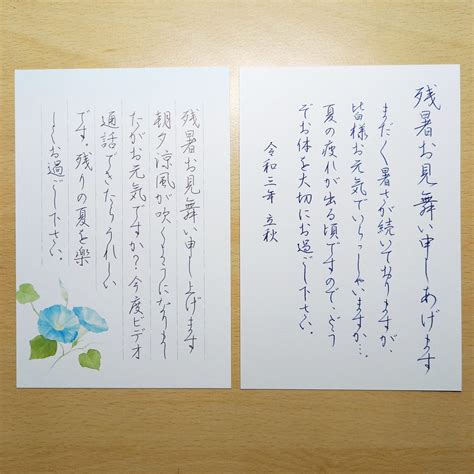 残暑お見舞い申しあげます
まだまだ暑さが続いておりますが、
皆様お元気でいらっしゃいますか…。
夏の疲れが出る頃ですので、どう
ぞお体を大切にお過ごし下さい。
令和三年 立秋
残暑お見舞い申し上げます
朝夕涼風が吹くようになりまし
たがお元気ですか?今度ビデオ
通話できたらうれしい
です。残りの夏を楽
しくお過ごし下さい。